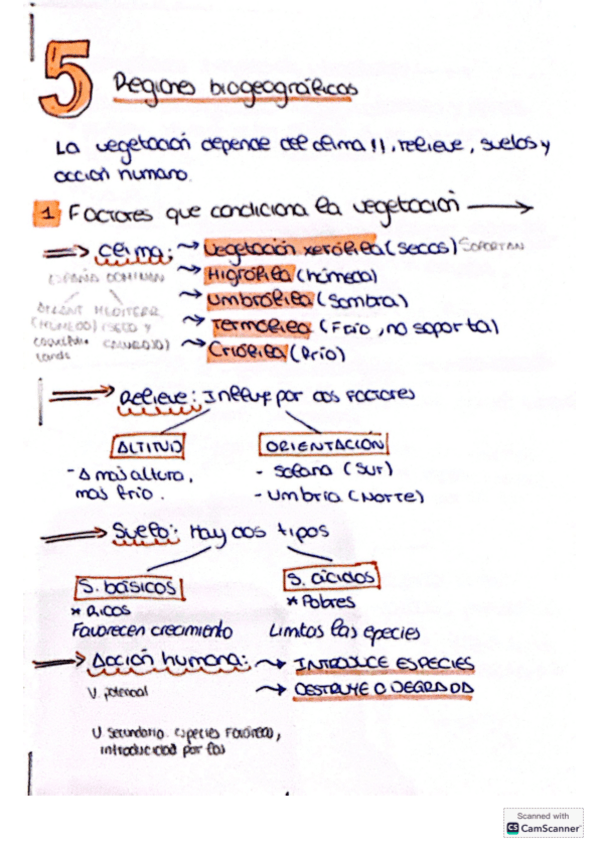 5 Regiones biogeográficas
La vegetación depende del clima !!, relieve, suelos y
acción humana.
1 Factores que condiciona la vegetación
Clima: Vegetación xerófila (secos) SOPORTAN
ESPAÑA DOMINAN Higrófila (húmeda)
Umbrófila (sombra)
MEDITERR.
(HUMEDO) (SECO Y Termófila (Frío, no soporta)
Criófila (frío)
Relieve: Influye por dos factores
ALTITUD ORIENTACIÓN
- A mas altura, - Solana (Sur)
mas frio. - Umbria (Norte)
Suelo: Hay dos tipos
S. básicos S. ácidos
* Ricos * Pobres
Favorecen crecimiento Limitos las epecies
Acción humana: INTRODUCE ESPECIES
V. potencial DESTRUYE O DEGRADA
V secundaria. especies
introducidad por las
Scanned with
CS CamScanner